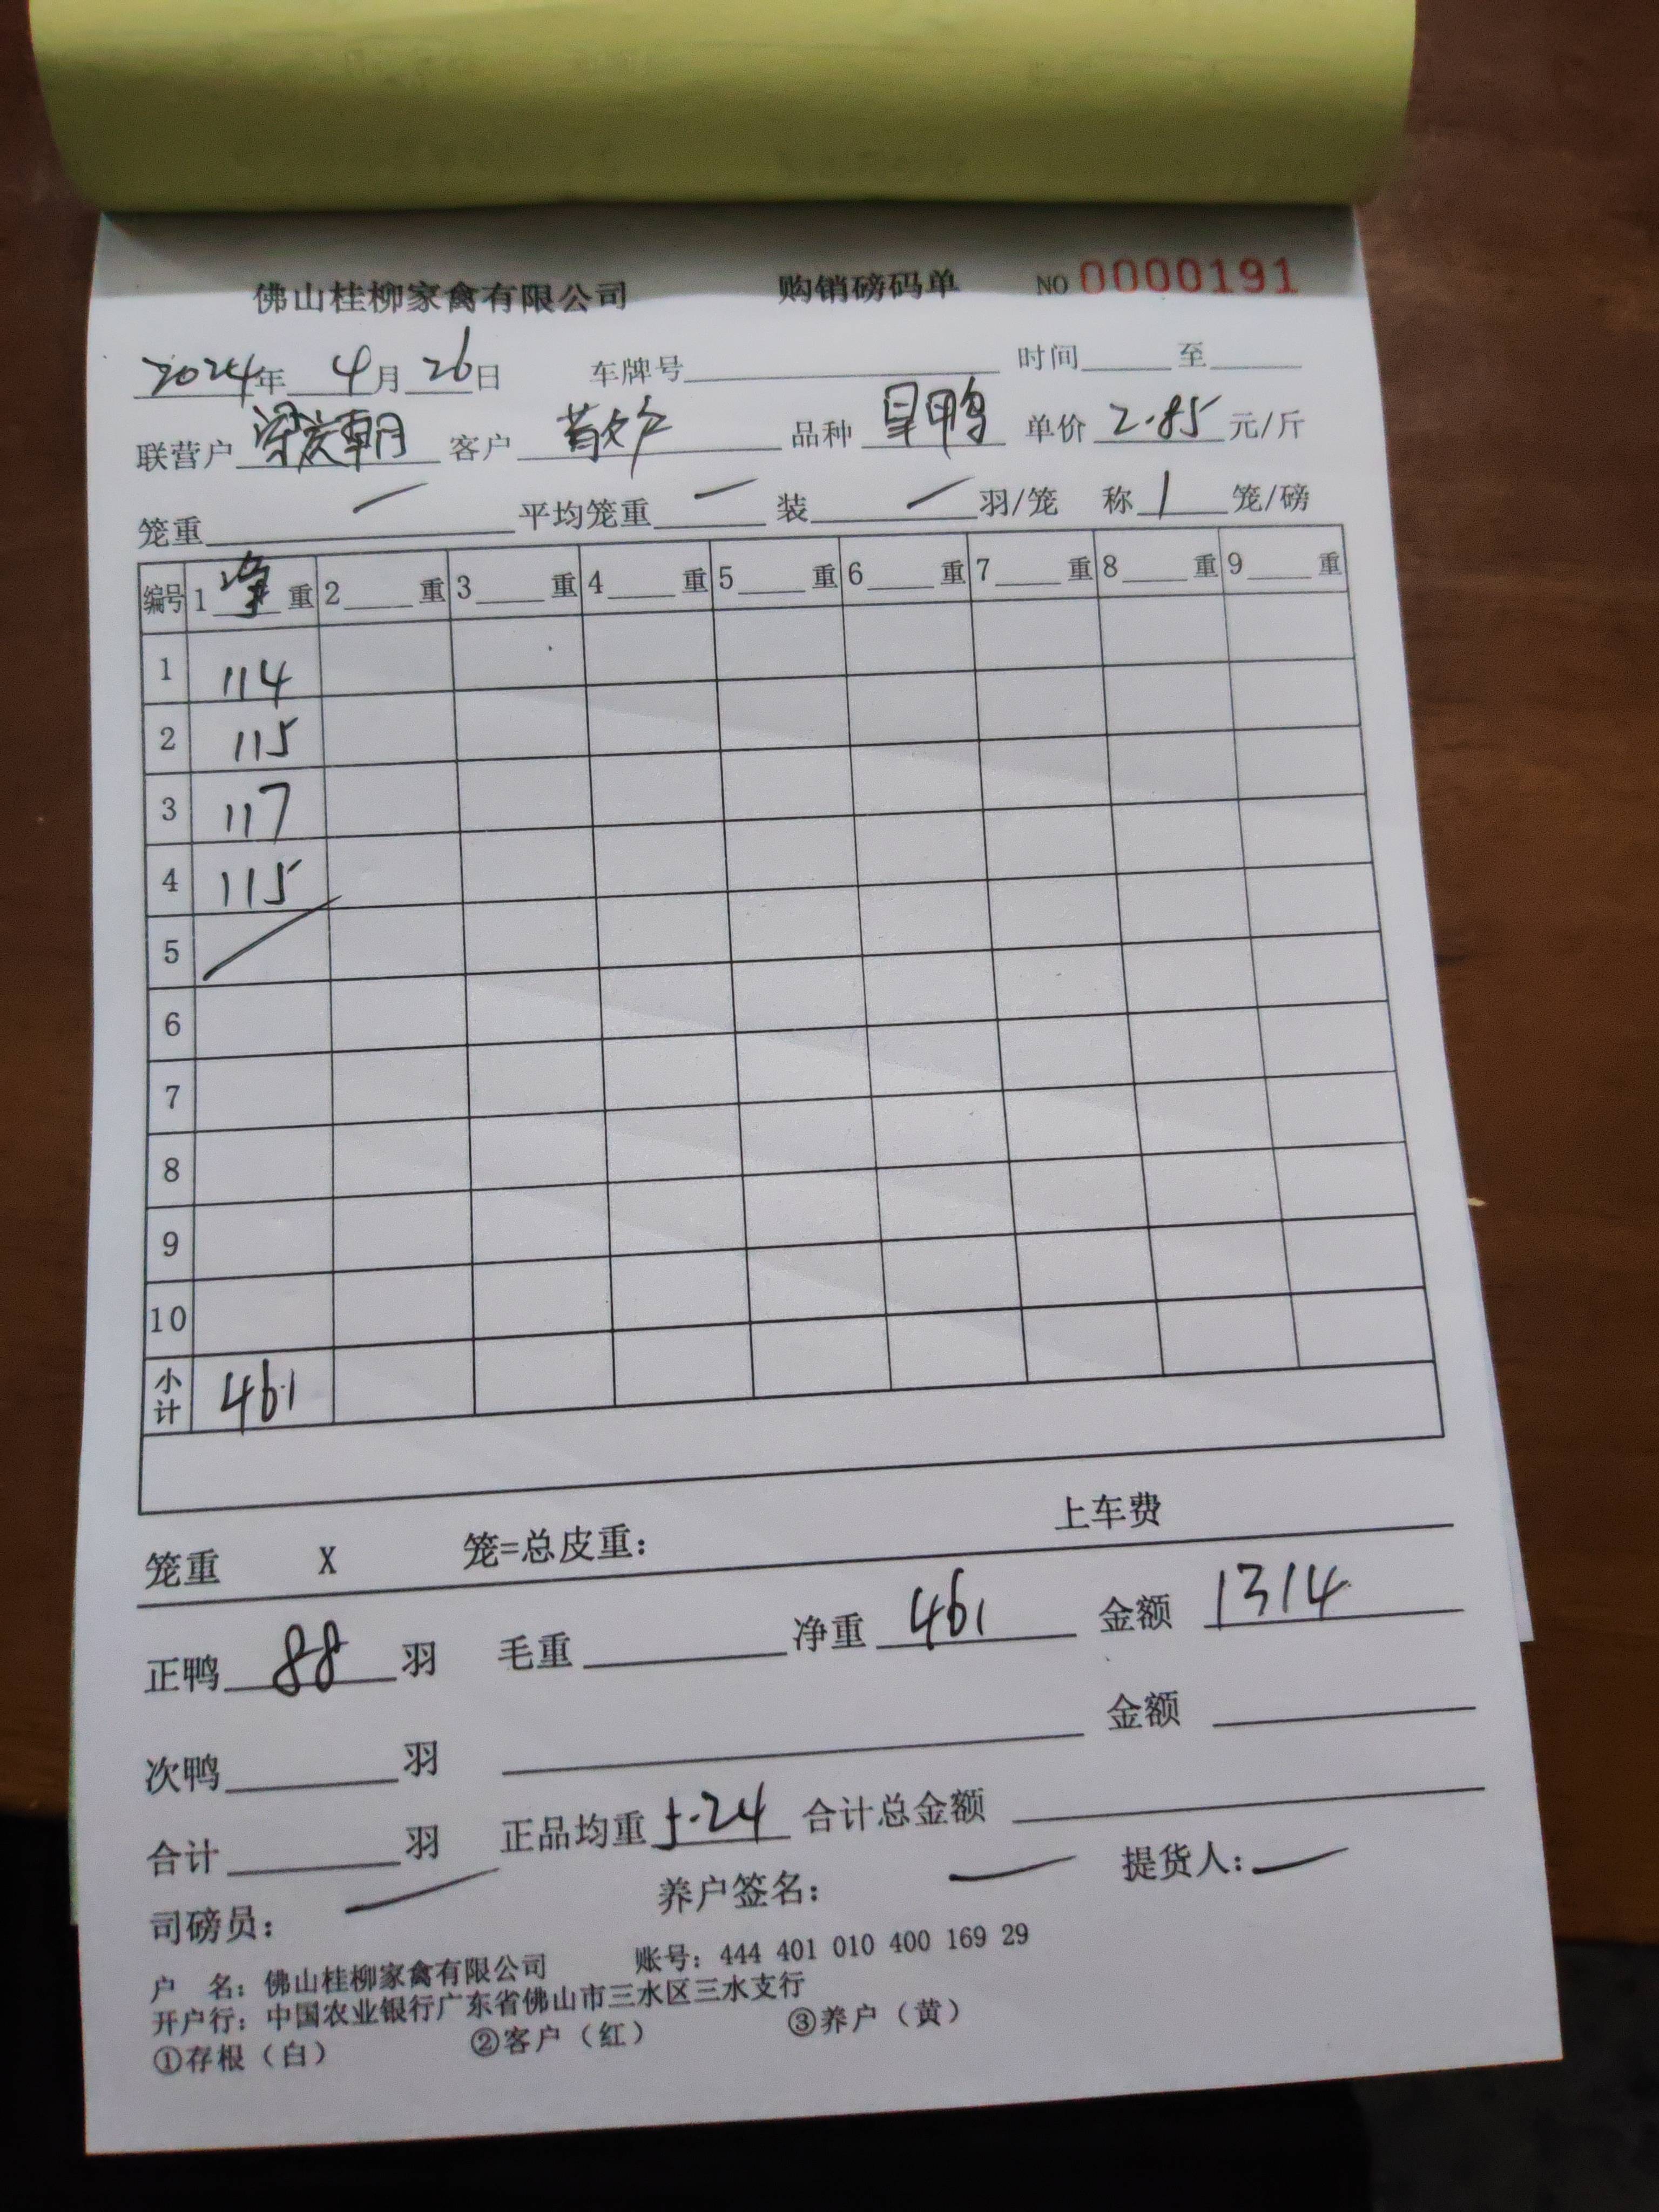 佛山桂柳家禽有限公司 购销磅码单 NO 0000191
2024年 4月 26日 车牌号 时间 至
联营户 梁庆朝 客户 品种 旱鸭 单价 2.85 元/斤
笼重 — 平均笼重 — 装 — 羽/笼 称 1 笼/磅
编号 1 净 重 2 重 3 重 4 重 5 重 6 重 7 重 8 重 9 重
1 114
2 115
3 117
4 115
5
6
7
8
9
10
小计 461
笼重 X 笼=总皮重: 上车费
正鸭 88 羽 毛重 净重 461 金额 1314
次鸭 羽 金额
合计 羽 正品均重 5.24 合计总金额
司磅员: — 养户签名: — 提货人: —
户 名: 佛山桂柳家禽有限公司 账号: 444 401 010 400 169 29
开户行: 中国农业银行广东省佛山市三水区三水支行
①存根（白） ②客户（红） ③养户（黄）